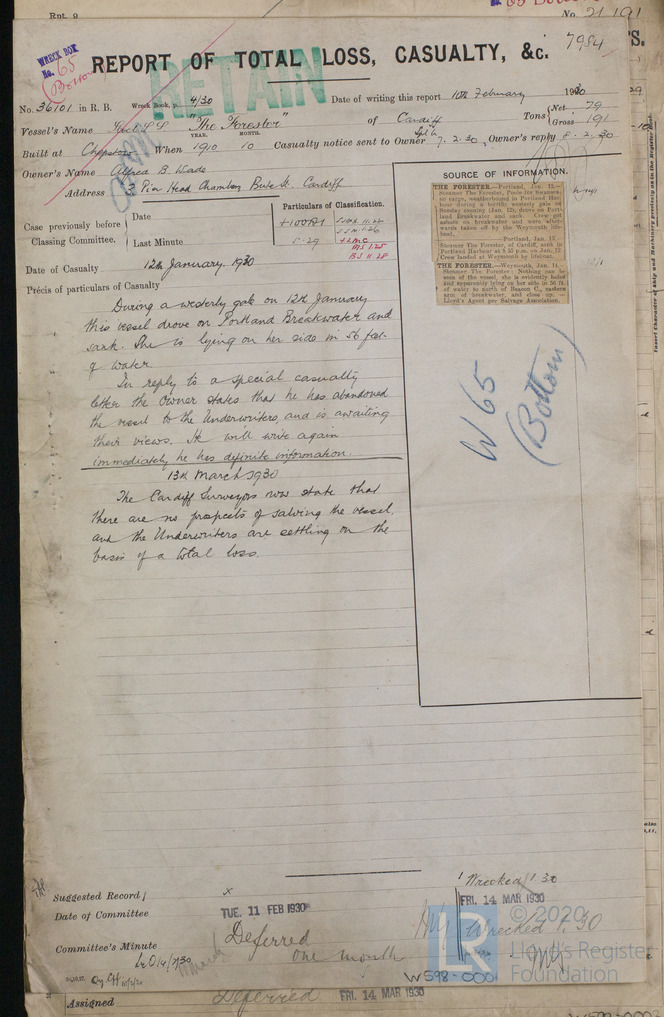 Rpt. 9
No. 21191
WRECK BOX
No. 65
(Bottom)
REPORT OF TOTAL LOSS, CASUALTY, &c.
7984
RETAIN
No. 36101 in R. B.
Wreck Book, p. 4/30
Date of writing this report 10th February 1930
Vessel's Name "The Forester" of Cardiff
Tons Net 79
Gross 191
YEAR. MONTH.
Built at Chepstow When 1910 10 Casualty notice sent to Owner 7.2.30, Owner's reply 8.2.30
Owner's Name Alfred B. Wade
Address 3 Pier Head Chambers Bute St. Cardiff
Case previously before Classing Committee.
Date
Last Minute
Particulars of Classification.
+100A1
5.29
+LMC
MS 1.25
BS 11.28
Date of Casualty 12th January 1930
Précis of particulars of Casualty
During a westerly gale on 12th January
this vessel drove on Portland Breakwater and
sank. She is lying on her side in 56 feet
of water.
In reply to a special casualty
letter the Owner states that he has abandoned
the vessel to the Underwriters, and is awaiting
their views. He will write again
immediately he has definite information.
13th March 1930
The Cardiff Surveyors now state that
there are no prospects of salving the vessel,
and the Underwriters are settling on the
basis of a total loss.
SOURCE OF INFORMATION.
THE FORESTER.—Portland, Jan. 13.—
Steamer The Forester, Poole for Swansea,
no cargo, weatherbound in Portland Har-
bour during a terrific westerly gale on
Sunday evening (Jan. 12), drove on Port-
land Breakwater and sank. Crew got
ashore on breakwater and were after-
wards taken off by the Weymouth life-
boat.
—Portland, Jan. 13.—
Steamer The Forester, of Cardiff, sank in
Portland Harbour at 5 35 p.m. on Jan. 12.
Crew landed at Weymouth by lifeboat.
THE FORESTER.—Weymouth, Jan. 14.—
Steamer The Forester: Nothing can be
seen of the vessel, she is evidently holed
and apparently lying on her side in 56 ft.
of water to north of Beacon C., eastern
arm of breakwater, and close up.—
Lloyd's Agent per Salvage Association.
W 65
(Bottom)
Suggested Record
Wrecked 1.30
Date of Committee
TUE. 11 FEB 1930
FRI. 14 MAR 1930
Committee's Minute
Deferred
one month
Wrecked 1.30
W598-000
© 2020
Lloyd's Register
Foundation
LR
Assigned
Deferred
FRI. 14 MAR 1930